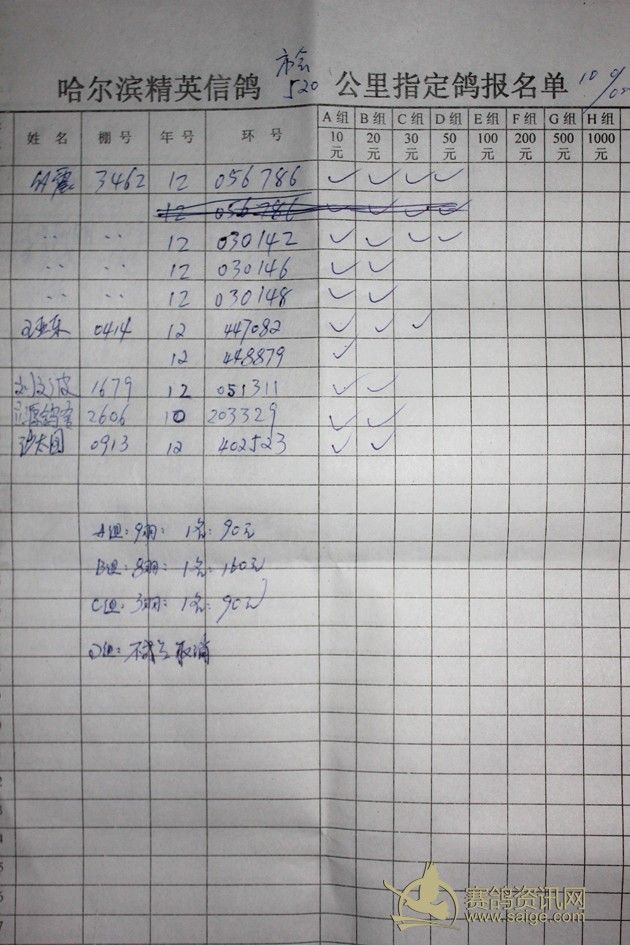 哈尔滨精英信鸽 市会 520 公里指定鸽报名单 10/
姓 名 棚 号 年 号 环 号 A 组 10 元 B 组 20 元 C 组 30 元 D 组 50 元 E 组 100 元 F 组 200 元 G 组 500 元 H 组 1000 元
3462 12 056786 ✓ ✓ ✓ ✓
12 056786 ✓ ✓ ✓ ✓
·· ·· 12 030142 ✓ ✓ ✓ ✓
·· ·· 12 030146 ✓ ✓
·· ·· 12 030148 ✓ ✓
0414 12 447082 ✓ ✓ ✓
12 448879 ✓
1679 12 051311 ✓ ✓
2606 10 203329 ✓ ✓
0913 12 402523 ✓ ✓
A组: 9羽: 1名: 90元
B组: 8羽: 1名: 160元
C组: 3羽: 1名: 90元
D组: 取消
赛鸽资讯网
www.saige.com